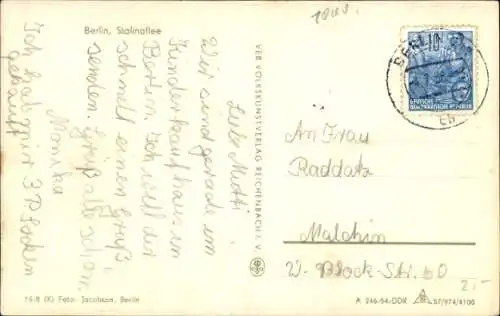 Berlin, Stalinallee
Liebe Mutti
Wir sind gerade im
Kinderkaufhaus in
Berlin. Ich will dir
schnell einen Gruß
senden. Grüß alle schön.
Monika
Ich hab mir 3 P. Socken
gekauft
VEB VOLKSKUNSTVERLAG REICHENBACH I. V.
BERLIN
10
DEUTSCHE
DEMOKRATISCHE REPUBLIK
An Frau
Raddatz
Malchin
W.-Block-Str. 60
2,-
15/8 (K) Foto: Jacobson, Berlin
A 246/54-DDR 57/974/4100